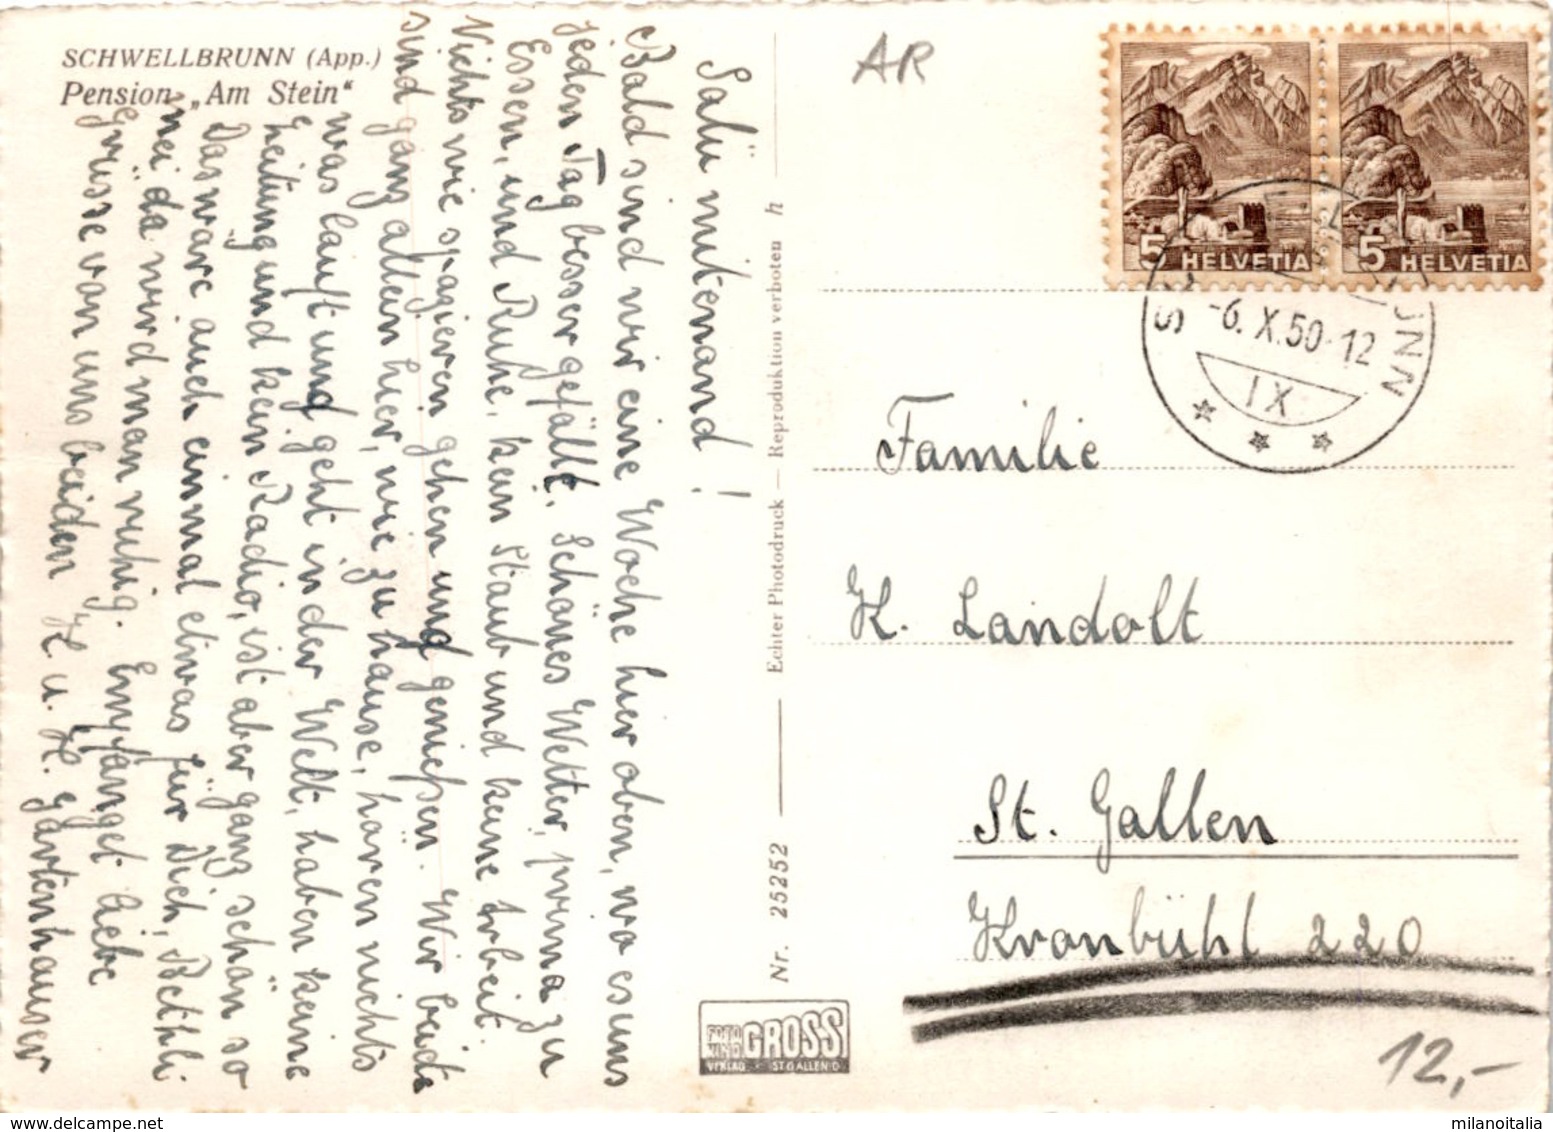 SCHWELLBRUNN (App.)
Pension „Am Stein"
Salü mitenand!
Bald sind wir eine Woche hier oben, wo es uns
jeden Tag besser gefällt. Schönes Wetter, prima zu
Essen, und Ruhe, kein Staub und keine Arbeit.
Nichts wie spazieren gehen und genießen. Wir beide
sind ganz allein hier, wie zu hause, hören nichts
was läuft und geht in der Welt, haben keine
Zeitung und kein Radio, ist aber ganz schön so
Das wäre auch einmal etwas für Dich, Bethli
nei da wird man ruhig. Empfanget liebe
Grüsse von uns beiden K. u. H. Gartenhauser
Nr. 25252 Echter Photodruck — Reproduktion verboten h
FOTO
GROSS
VERLAG ST GALLEN O
AR
5 HELVETIA
5 HELVETIA
-6.X.50-12
IX
Familie
K. Landolt
St. Gallen
Kronbühl 220
12,-
milanoitalia